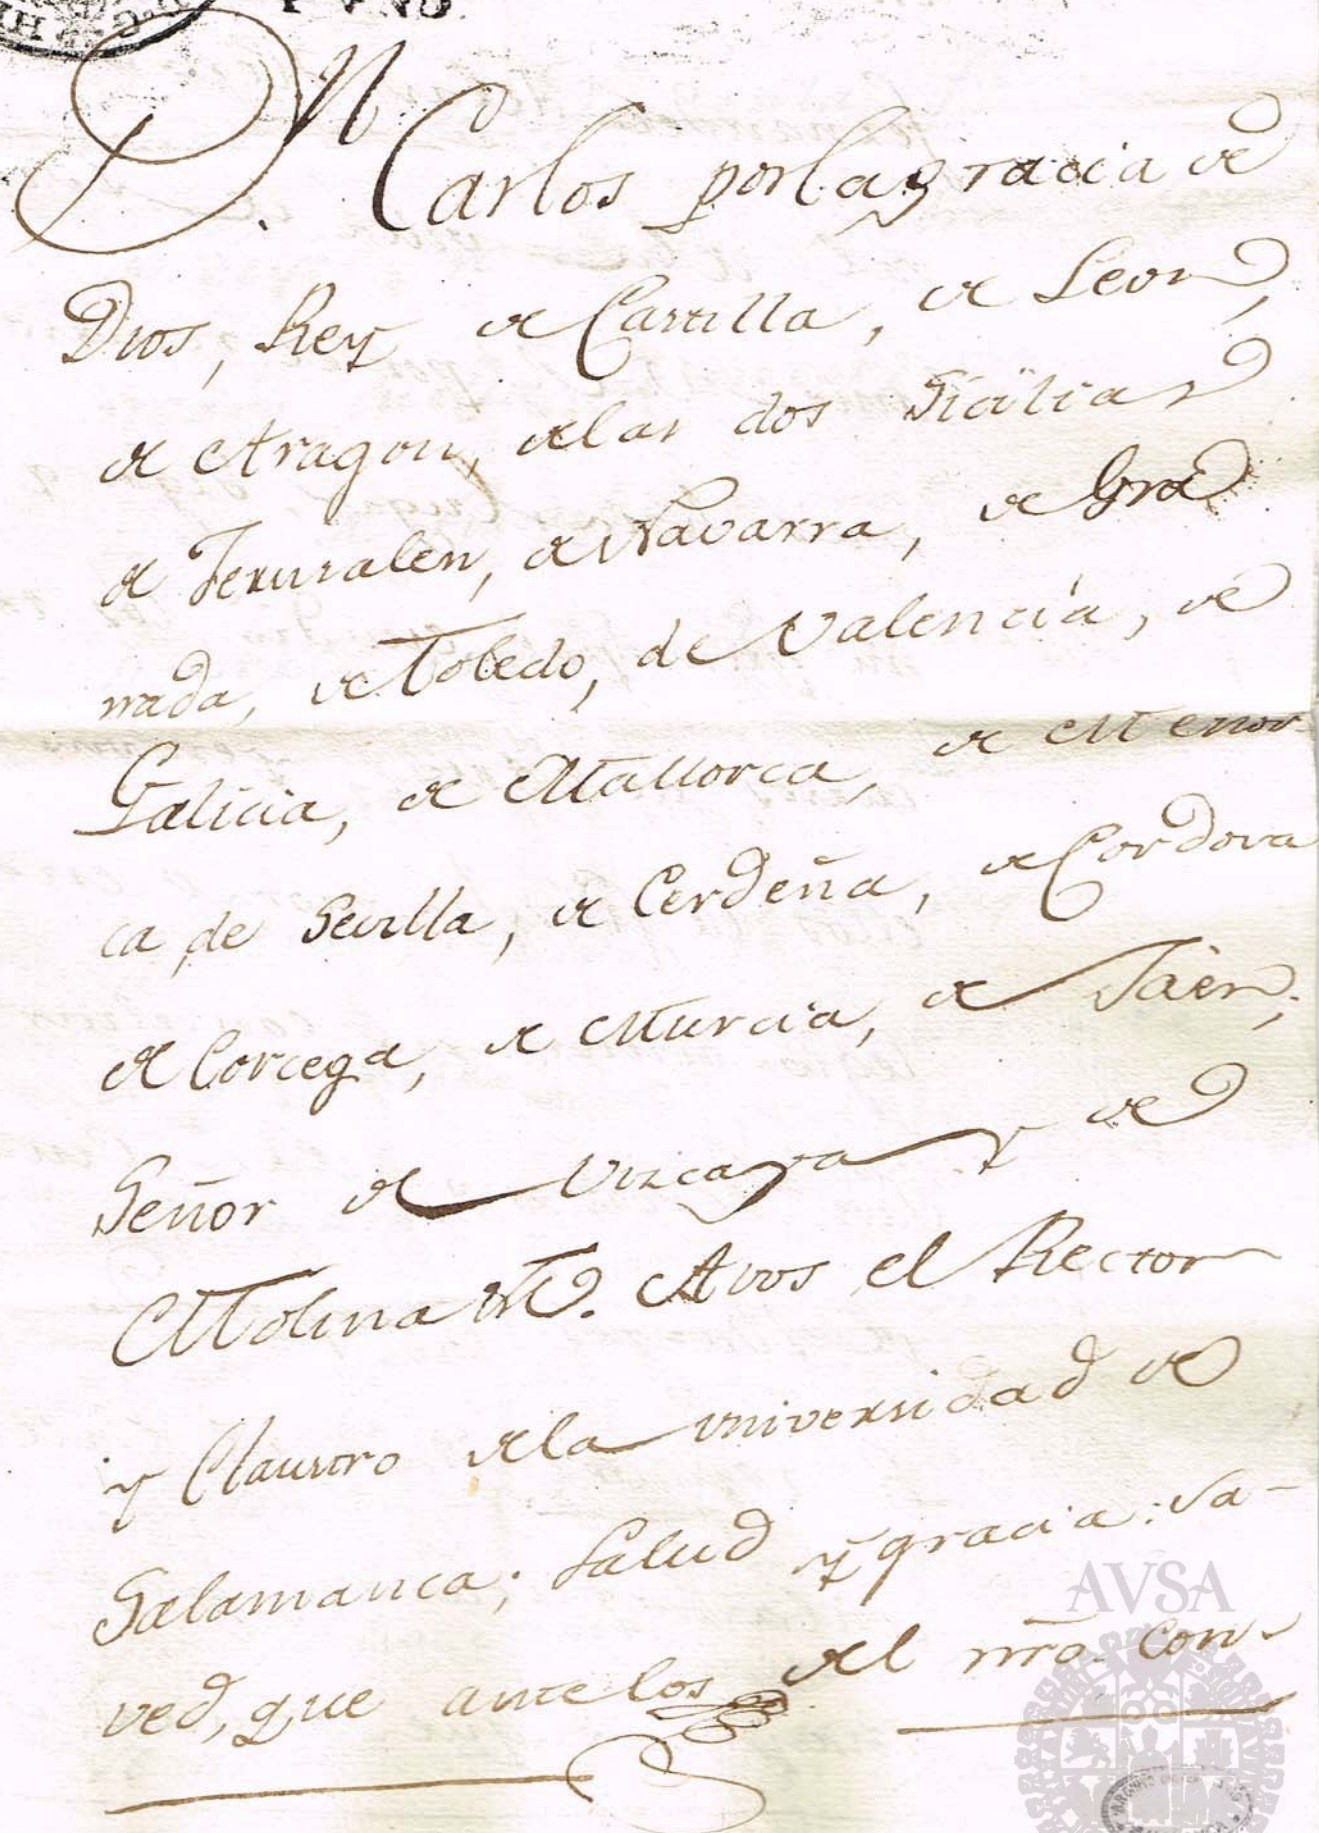 Dn. Carlos por la gracia de
Dios, Rey de Castilla, de Leon,
de Aragon, de las dos Sicilias
de Jerusalen, de Navarra, de Gra
nada, de Toledo, de Valencia, de
Galicia, de Mallorca, de Menor
ca, de Sevilla, de Cerdeña, de Cordova
de Corcega, de Murcia, de Jaèn,
Señor de Vizcaya y de
Molina &c. A vos el Rector
y Claustro de la Universidad de
Salamanca; Salud y gracia: Sa-
ved, que ante los del nro. Con-
AVSA